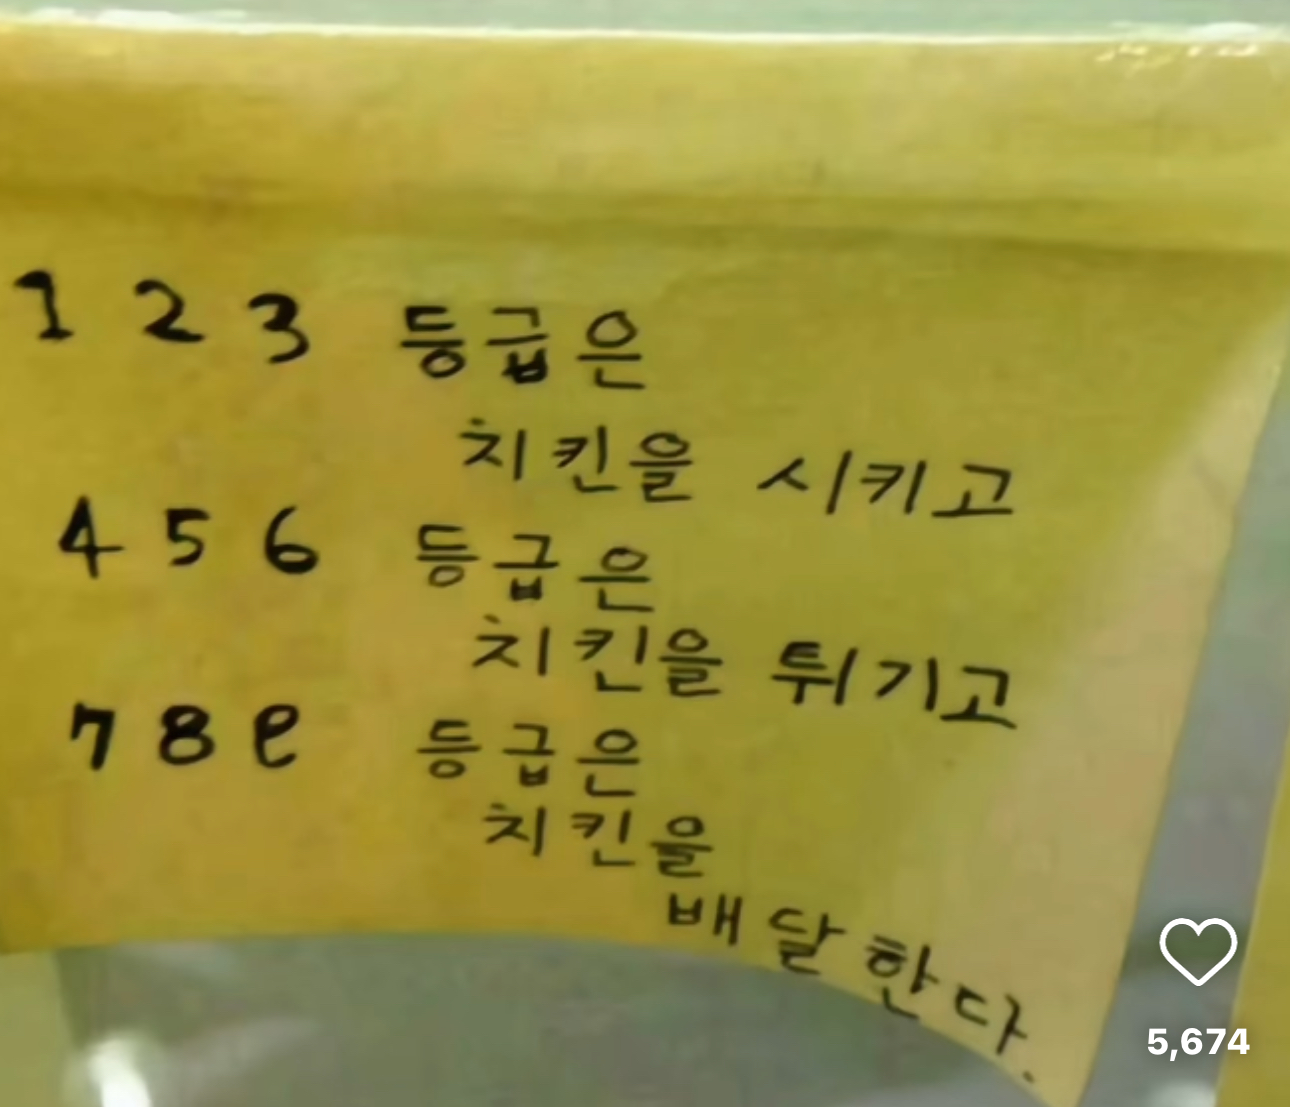 1 2 3 등급은
치킨을 시키고
4 5 6 등급은
치킨을 튀기고
7 8 9 등급은
치킨을
배달한다.
5,674